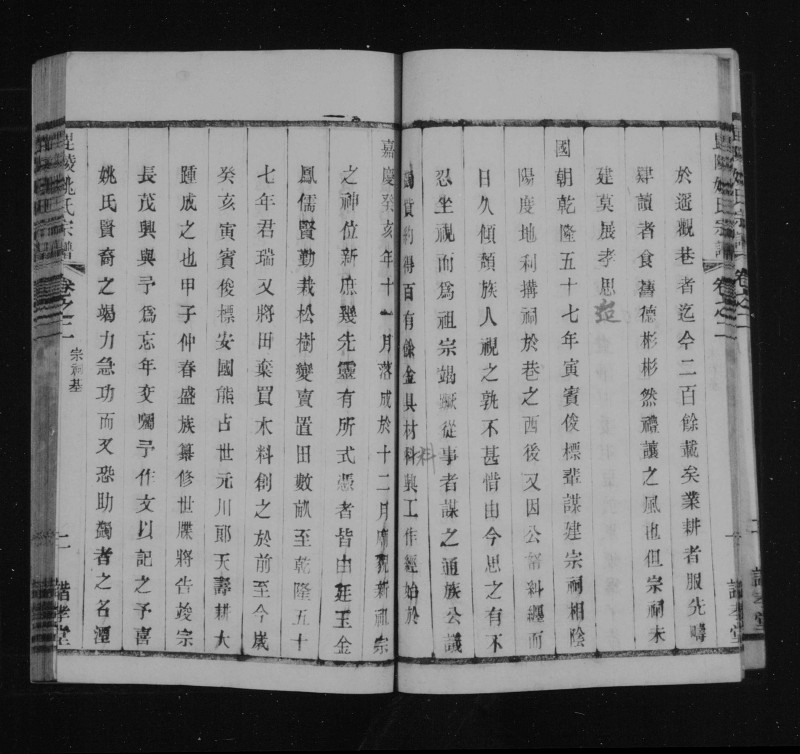 於遥觀巷者迄今二百餘載矣業耕者服先疇
肄讀者食舊德彬彬然禮讓之風也但宗祠未
建莫展孝思
國朝乾隆五十七年寅賓俊標輩謀建宗祠相陰
陽度地利搆祠於巷之西後又因公帑糾纏而
日久傾頹族人視之孰不甚惜由今思之有不
忍坐視而爲祖宗竭蹶從事者謀之通族公議
捐貲約得百有餘金具材料興工作經始於
料
嘉慶癸亥年十一月落成於十二月廟觀新祖宗
之神位新庶幾先靈有所式憑者皆由廷玉金
鳳儒賢勤栽松樹變賣置田數畝至乾隆五十
七年君瑞又將田棄買木料創之於前至今歲
癸亥寅賓俊標安國熊占世元川郎天壽耕大
踵成之也甲子仲春盛族纂修世牒將告竣宗
長茂興與予爲忘年交囑予作文以記之予喜
姚氏賢裔之竭力急功而又恐助蠲者之名湮
毘陵姚氏宗譜
卷之二
宗祠基
二
諧孝堂
毘陵姚氏宗譜
卷之二